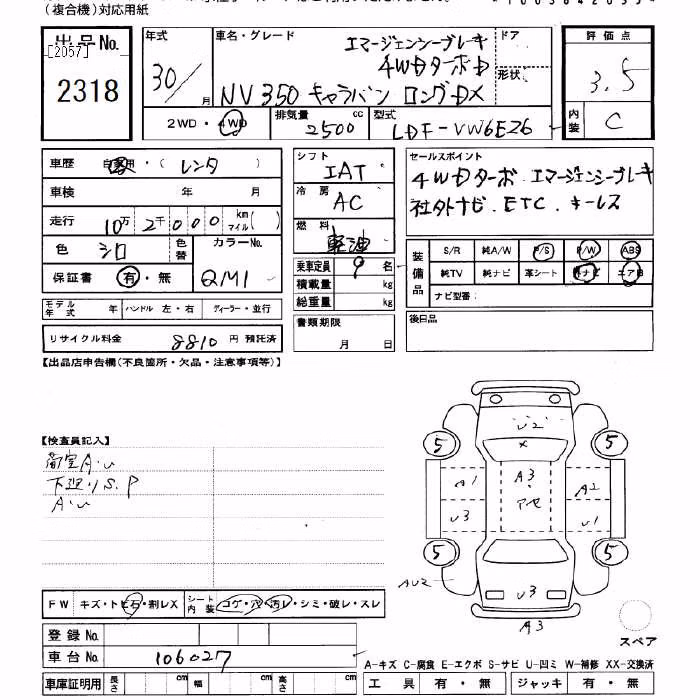 (複合機)対応用紙
出品No.
[2057]
2318
年式
30/
月
車名・グレード
エマージェンシーブレーキ
4WDターボD
NV350 キャラバン ロングDX
ドア
形状
評価点
3.5
内装
C
2WD・4WD
排気量
2500
cc
型式
LDF-VW6E26
車歴
自家用・( レンタ )
車検
年
月
走行
10万2千000
km
マイル( )
色
シロ
色替
カラーNo.
QM1
保証書
有・無
モデル年式
年
ハンドル 左・右
ディーラー・並行
リサイクル料金
8810
円 預託済
シフト
IAT
冷房
AC
燃料
軽油
乗車定員
9
名
積載量
kg
総重量
kg
書類期限
月 日
セールスポイント
4WDターボ.エマージェンシーブレーキ
社外ナビ.ETC.キーレス
装備品
S/R
純A/W
P/S
P/W
ABS
純TV
純ナビ
革シート
ナビ型番:
後日品
【出品店申告欄(不良箇所・欠品・注意事項等)】
【検査員記入】
荷室A・U
下廻りS.P
A・U
U2
×
5
5
A1
A3
A2
U3
U1
5
5
AU2
U3
A3
スペア
FW
キズ・トビ石・割レX
シート内装
コゲ・穴・汚レ・シミ・破レ・スレ
登録No.
車台No.
106027
A-キズ C-腐食 E-エクボ S-サビ U-凹ミ W-補修 XX-交換済
車庫証明用
長さ
cm
幅
cm
高さ
cm
工具
有・無
ジャッキ
有・無